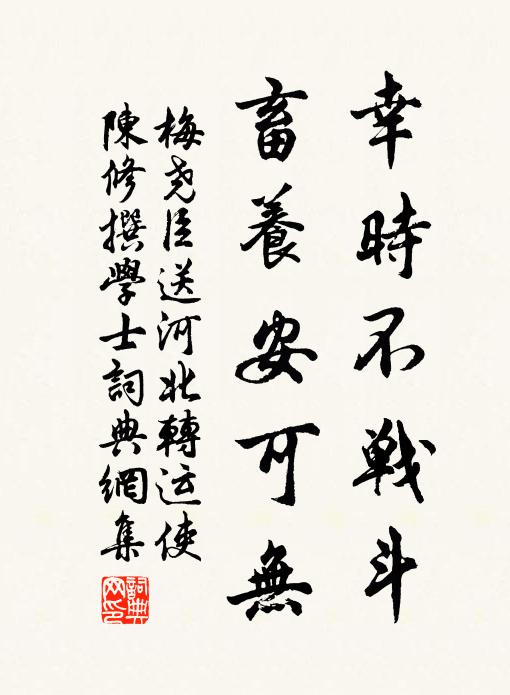 幸時不戰斗
畜養安可無
梅堯臣送河北轉运使
陳修撰學士詞典網集
詞典网印